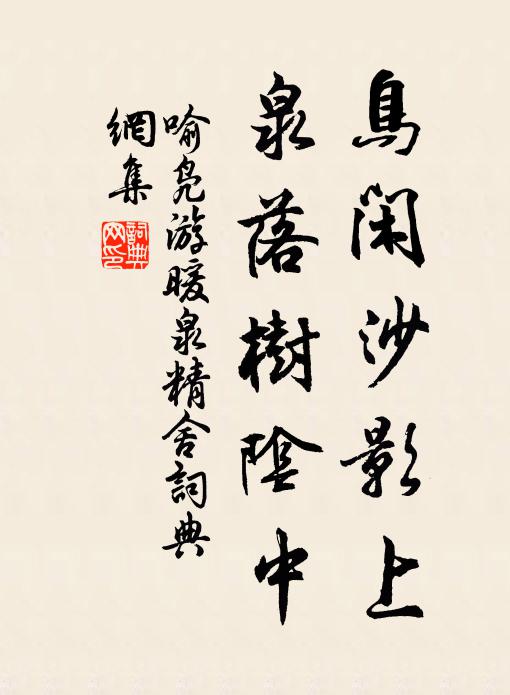 鳥閑沙影上
泉落樹陰中
喻凫游暖泉精舍詞典
網集
詞典
网印